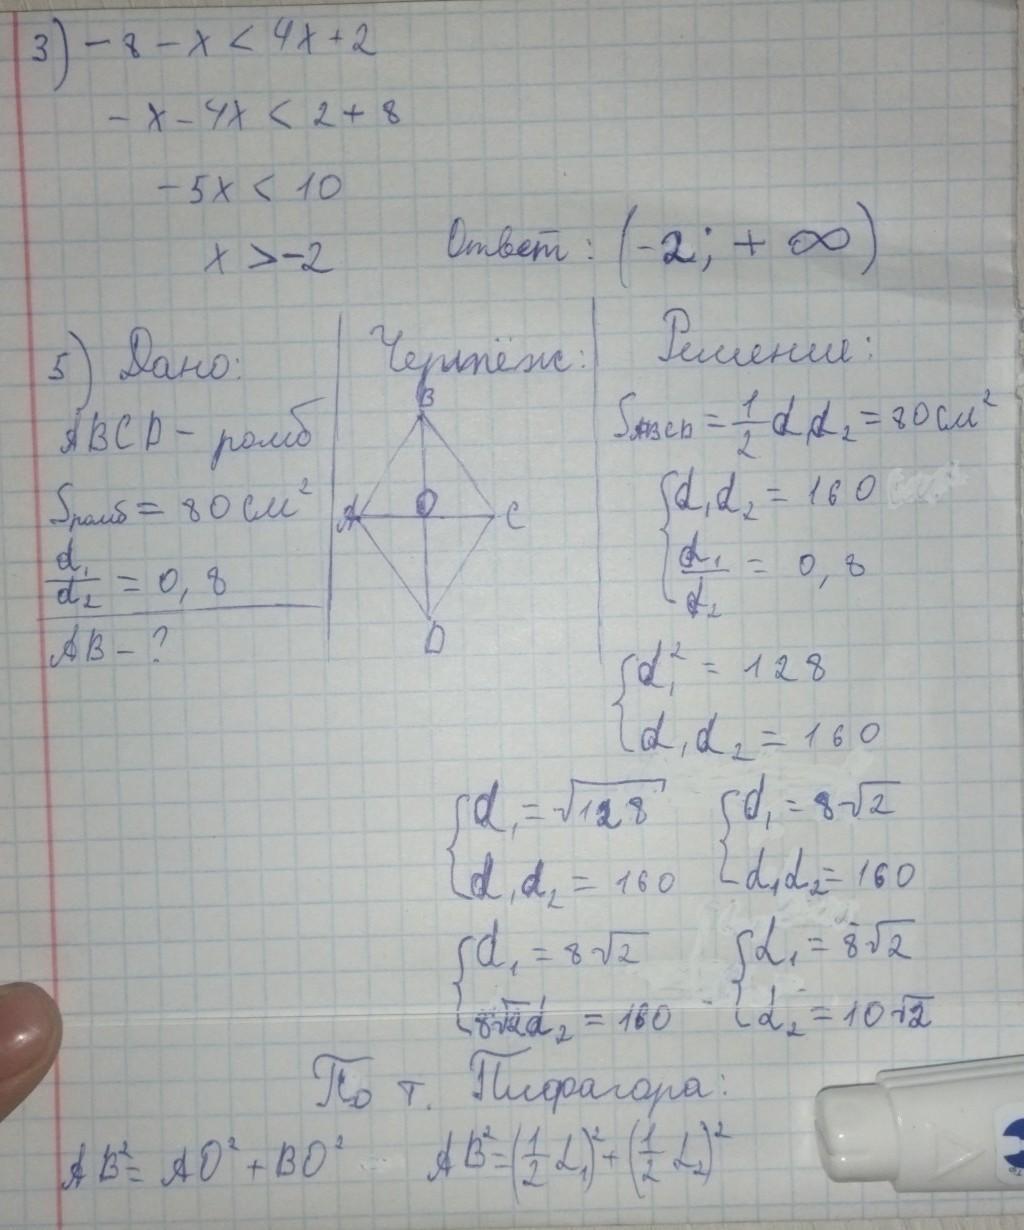 3) -8 - x < 4x + 2
-x - 4x < 2 + 8
-5x < 10
x > -2 Ответ: (-2; + ∞)
5) Дано:
ABCD - ромб
Sромб = 80 см²
d₁/d₂ = 0,8
AB - ?
Чертёж:
B
A O C
D
Решение:
SABCD = 1/2 d₁d₂ = 80 см²
{ d₁d₂ = 160
d₁/d₂ = 0,8
{ d₁² = 128
d₁d₂ = 160
{ d₁ = √128
d₁d₂ = 160
{ d₁ = 8√2
d₁d₂ = 160
{ d₁ = 8√2
8√2d₂ = 160
{ d₁ = 8√2
d₂ = 10√2
По т. Пифагора:
AB² = AO² + BO² AB² = (1/2 d₁)² + (1/2 d₂)²